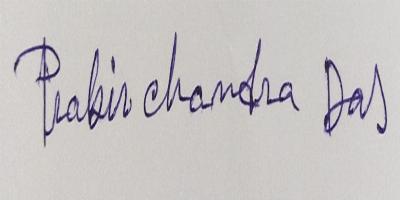 Prabir chandra Das